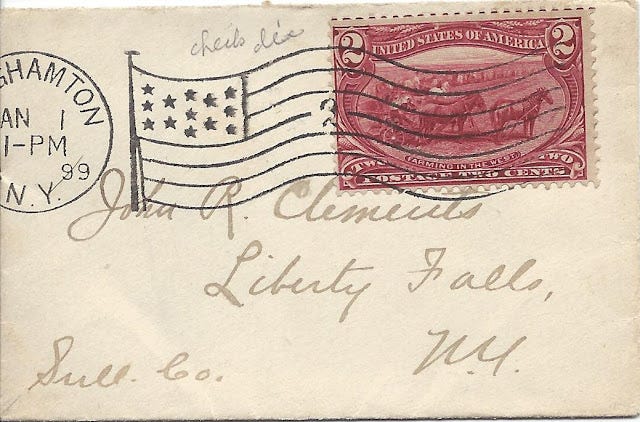 GHAMTON
AN 1
1-PM
99
N.Y.
2 UNITED STATES OF AMERICA 2
FARMING IN THE WEST.
TWO TWO
POSTAGE TWO CENTS
John R. Clements
Liberty Falls,
N.Y.
Sull. Co.